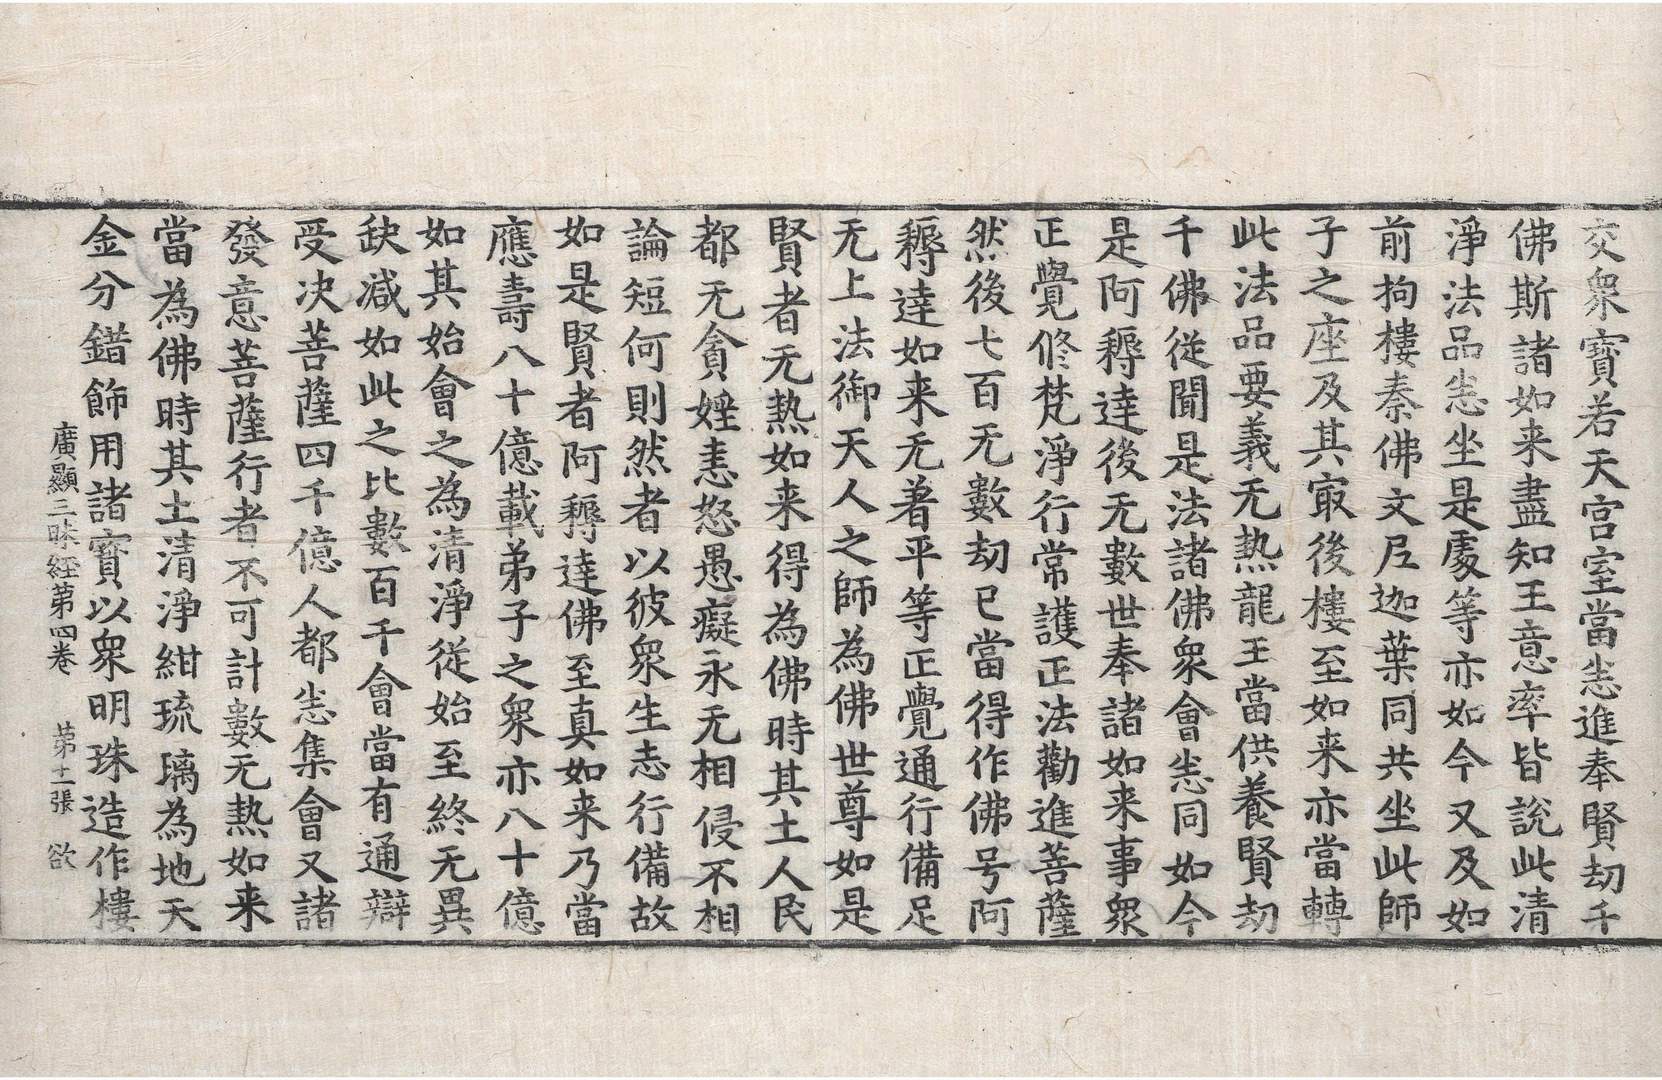 交衆寶若天宫室當恙進奉賢劫千
佛斯諸如来盡知王意率皆説此清
淨法品恙坐是處等亦如今又及如
前拘樓秦佛文尼迦葉同共坐此師
子之座及其㝡後樓至如来亦當轉
此法品要義无热龍王當供養賢劫
千佛従聞是法諸佛衆會恙同如今
是阿耨達後无數世奉諸如来事衆
正覺修梵淨行常護正法勸進菩薩
然後七百无數劫已當得作佛号阿
耨達如来无著平等正覺通行備足
无上法御天人之師為佛世尊如是
賢者无热如来得為佛時其土人民
都无貪婬恚怒愚癡永无相侵不相
論短何則然者以彼衆生志行備故
如是賢者阿耨達佛至真如来乃當
應壽八十億載弟子之衆亦八十億
如其始會之為清淨従始至終无異
缺減如此之比數百千會當有通辯
受决菩薩四千億人都恙集會又諸
發意菩薩行者不可計數无热如来
當為佛時其土清淨紺琉璃為地天
金分錯飾用諸寶以衆明珠造作樓
廣顯三昧經第四卷　第十一張　欲